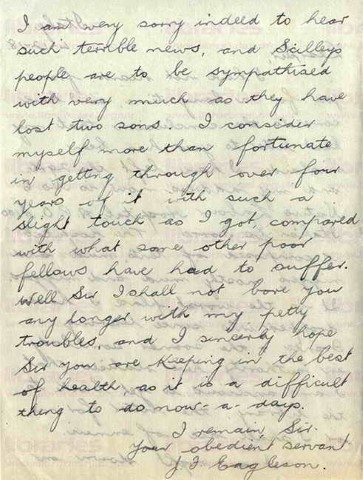 I am very sorry indeed to hear
such terrible news, and Scilleys
people are to be sympathised
with very much as they have
lost two sons. I consider
myself more than fortunate
in getting through over four
years of it ith such a
slight touch as I got compared
with what some other poor
fellows have had to suffer.
Well Sir I shall not bore you
any longer with my petty
troubles, and I sincerely hope
Sir you are keeping in the best
of health, as it is a difficult
thing to do now-a-days.
I remain, Sir.
Your obedient servant
J J Eagleson.